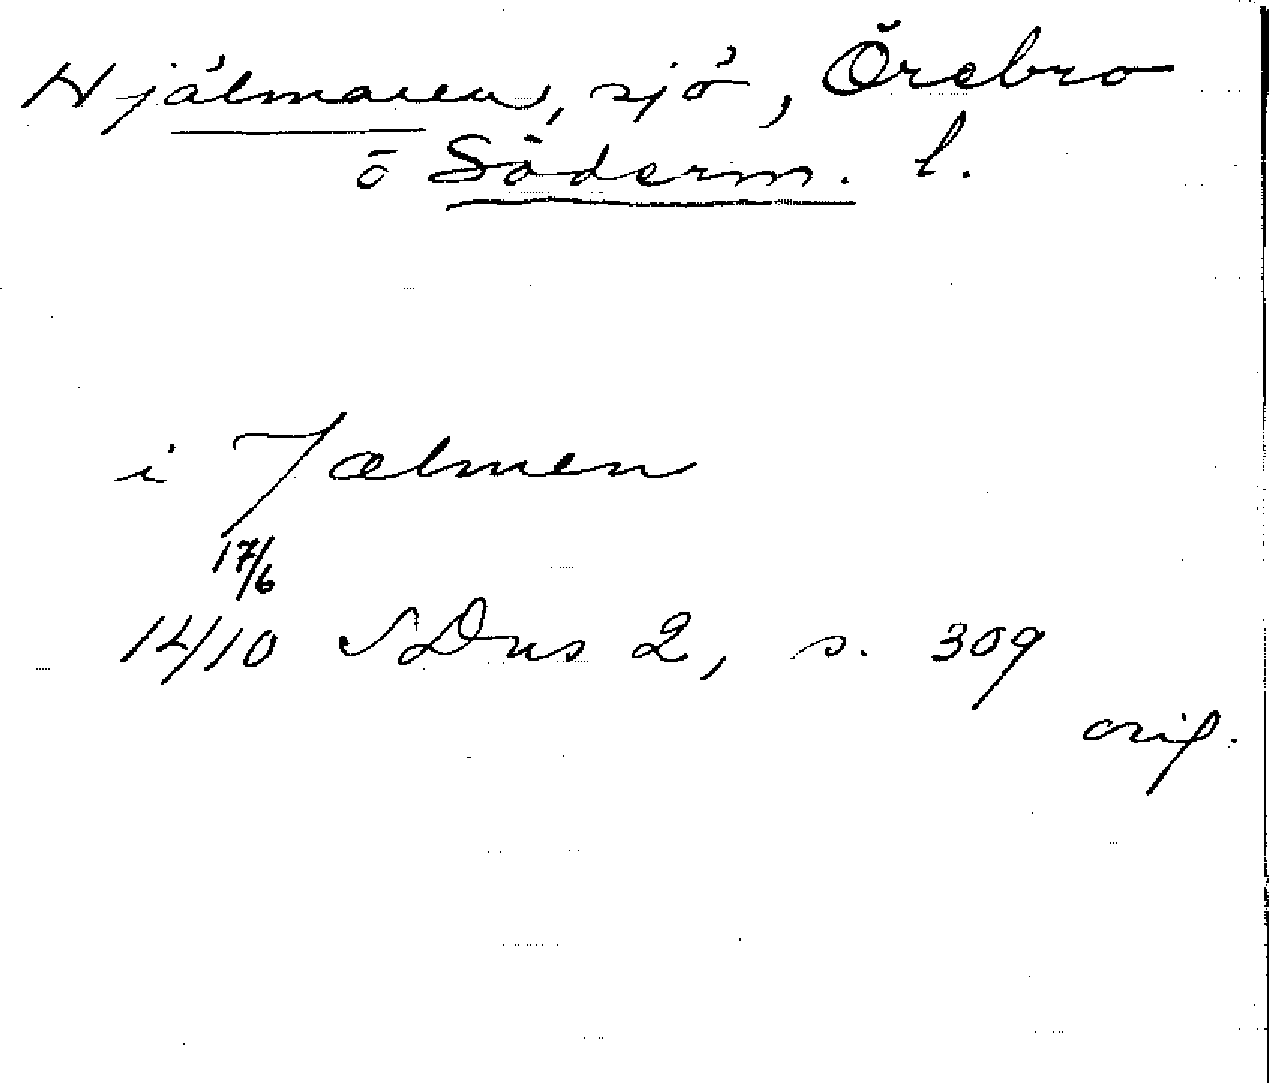 Hjälmaren, sjö, Örebro
o Söderm. l.
i Jælmen
17/6
1410 SDns 2, s. 309
orig.